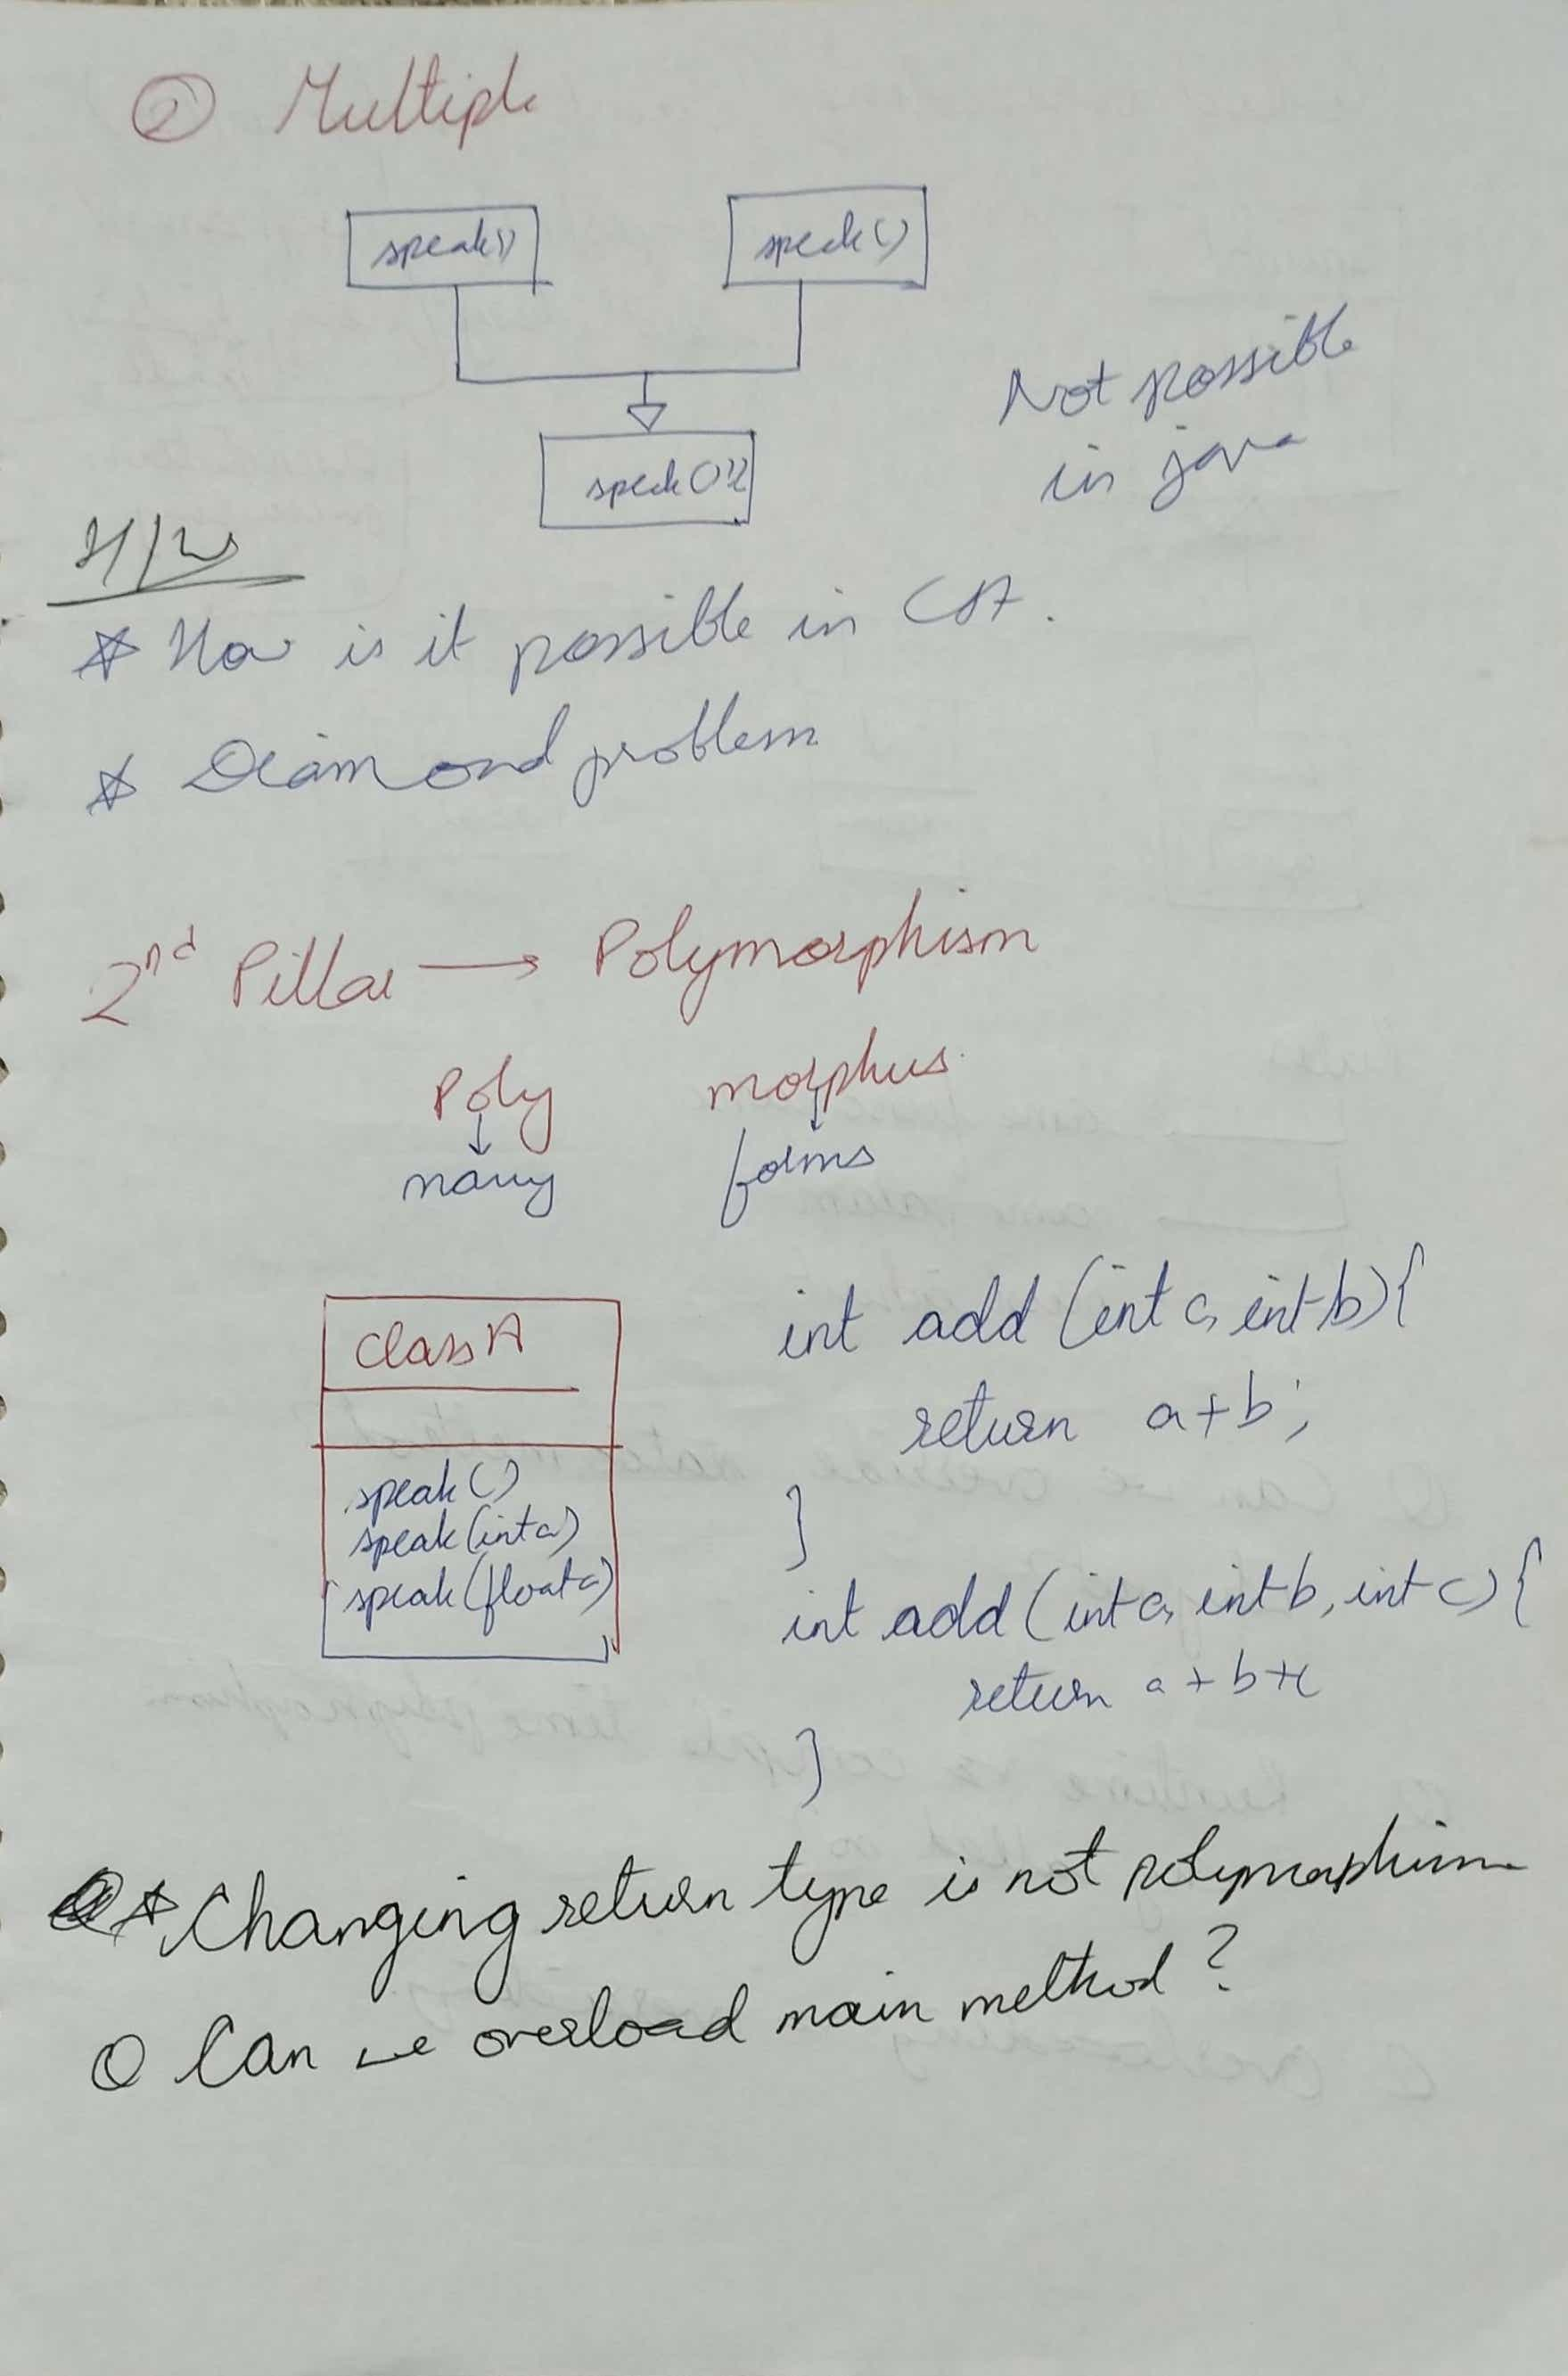 ② Multiple
speak()
speak()
Not possible
in java
speak()
H/W
* How is it possible in
* Diamond problem
2nd Pillar → Polymorphism
Poly morphus
↓ ↓
many forms
class A
speak()
speak(int a)
speak(float a)
int add (int a, int b) {
return a + b ;
}
int add (int a, int b, int c) {
return a + b + c
}
* Changing return type is not polymorphism
Q Can we overload main method ?